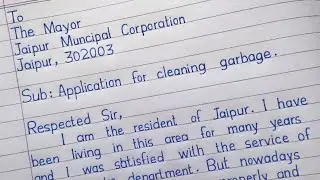 To
The Mayor
Jaipur Muncipal Corporation
Jaipur, 302003
Sub: Application for cleaning garbage.
Respected Sir,
I am the resident of Jaipur. I have
been living in this area for many years
and I was sbtisfied with the service of
department. But nowadays
properly and